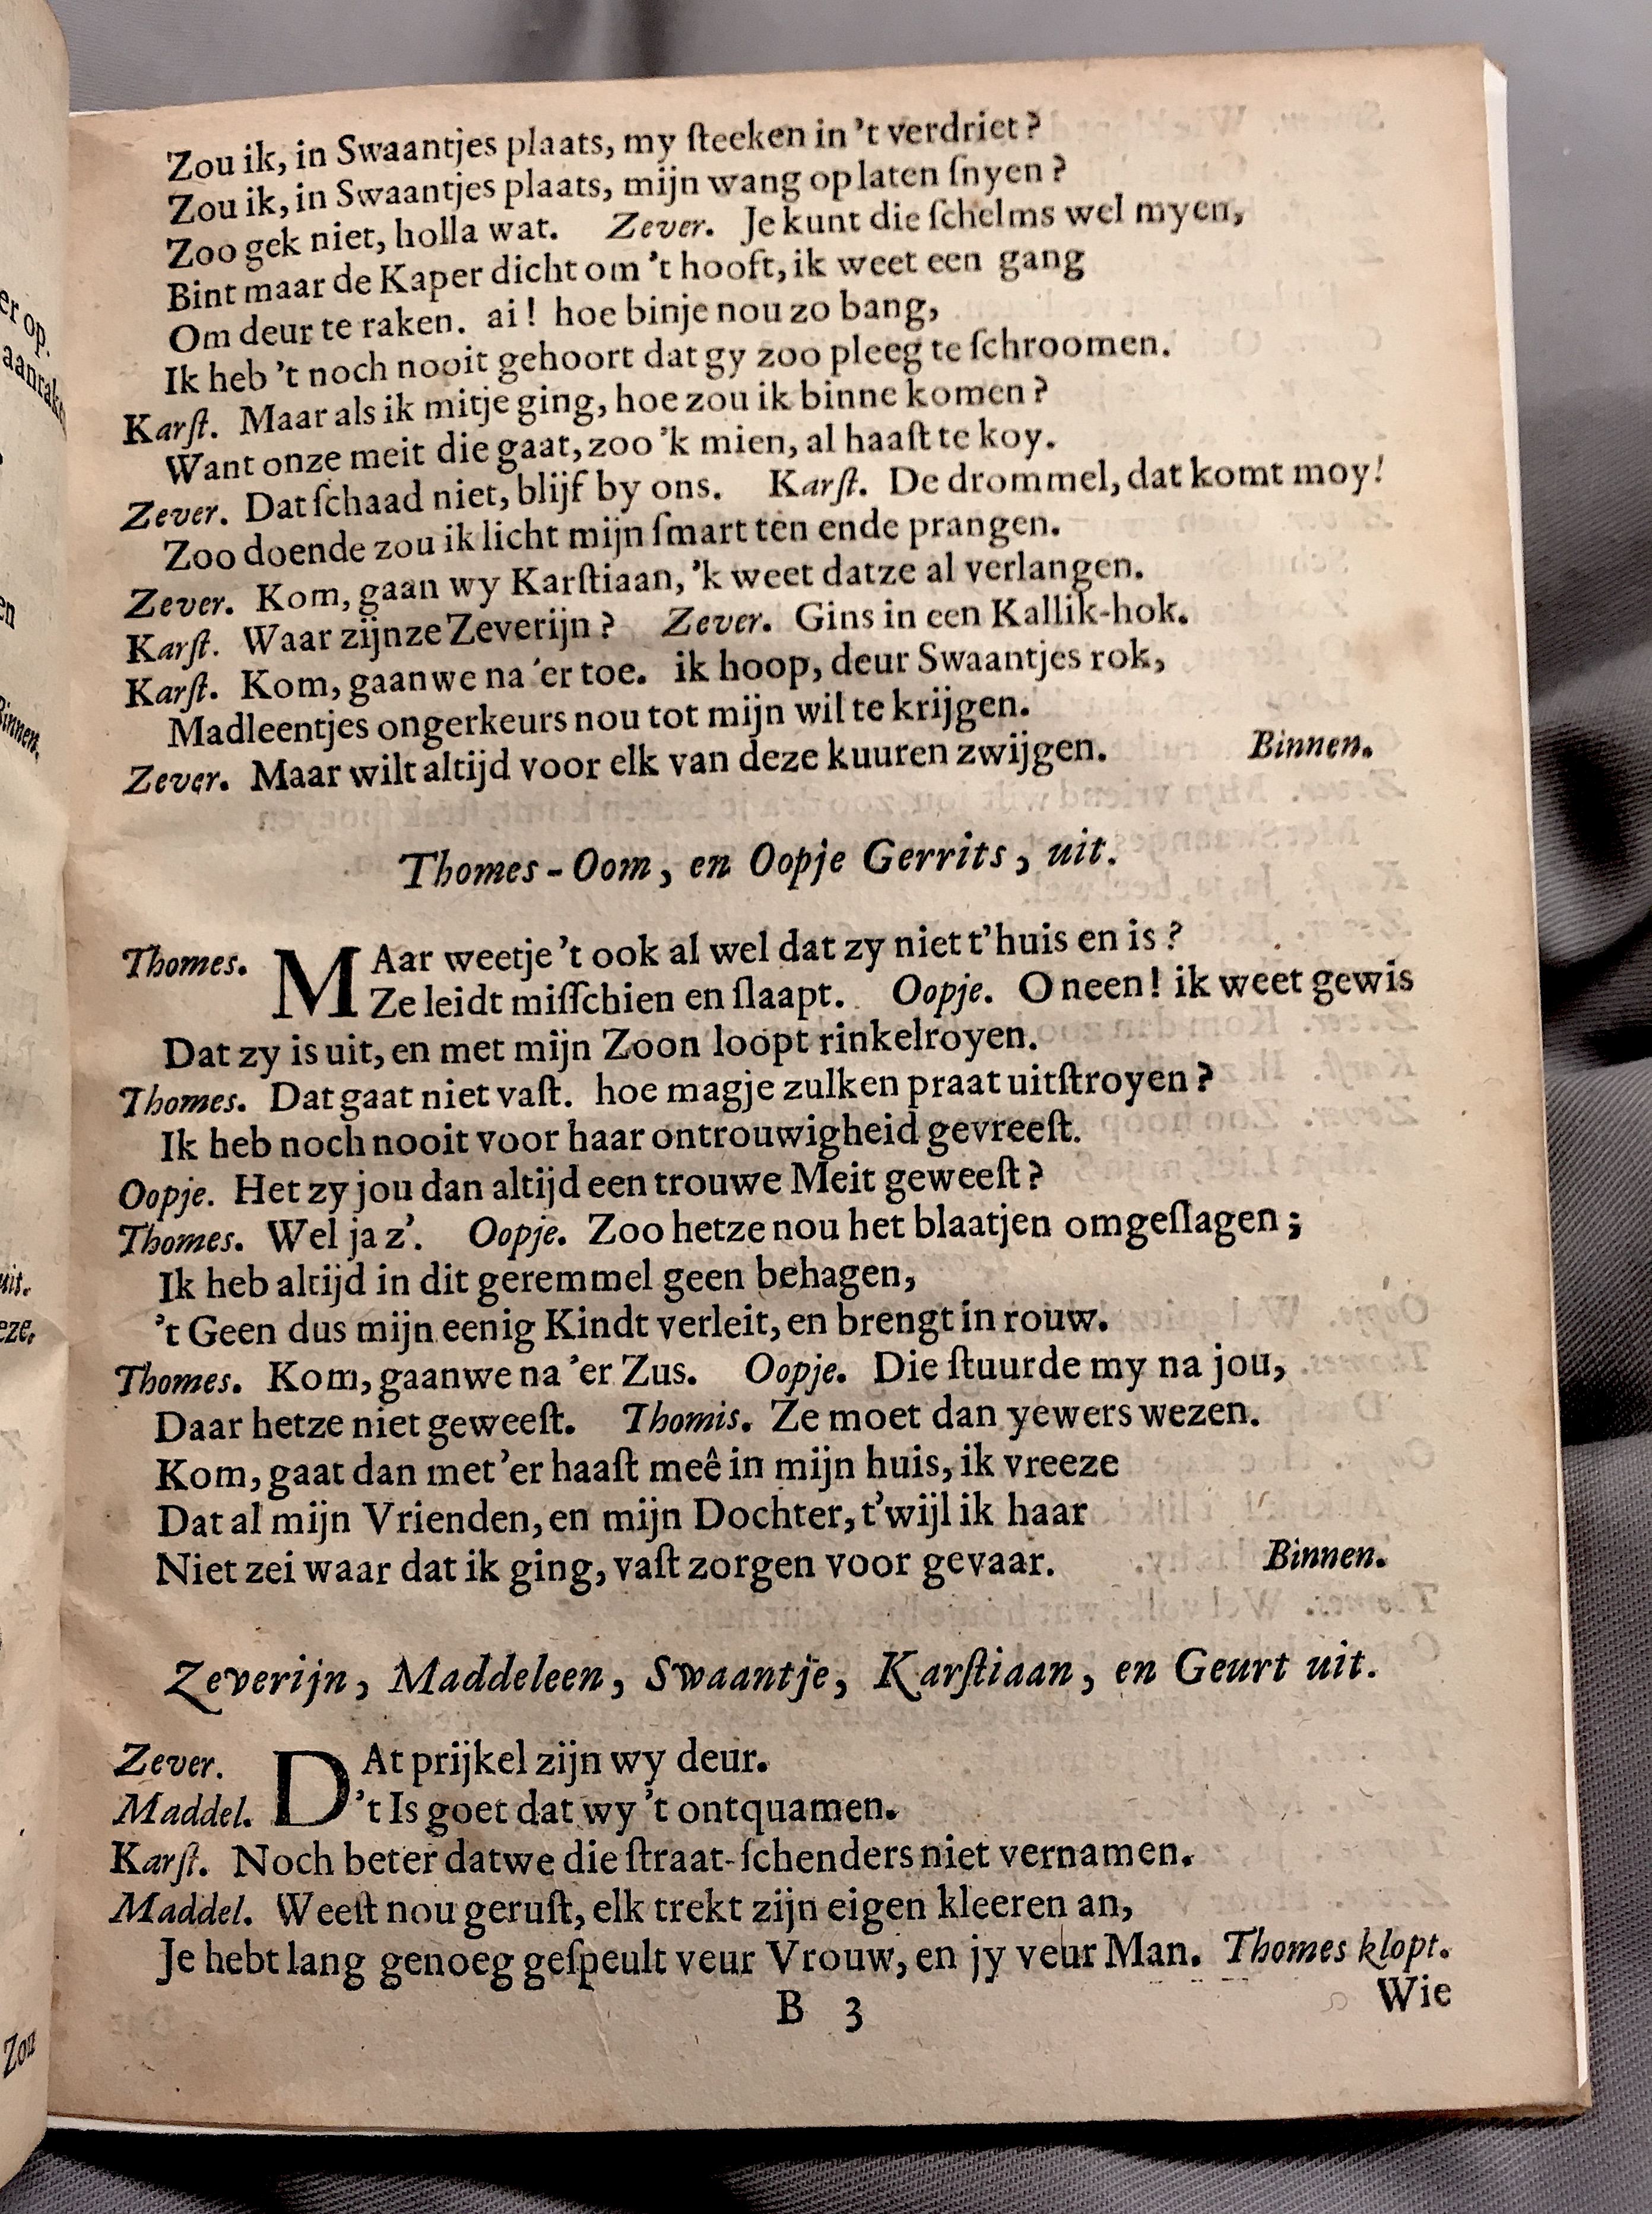 Zou ik, in Swaantjes plaats, my ſteeken in 't verdriet?
Zou ik, in Swaantjes plaats, mijn wang op laten ſnyen?
Zoo gek niet, holla wat. Zever. Je kunt die ſchelms wel myen,
Bint maar de Kaper dicht om 't hooft, ik weet een gang
Om deur te raken. ai! hoe binje nou zo bang,
Ik heb 't noch nooit gehoort dat gy zoo pleeg te ſchroomen.
Karſt. Maar als ik mitje ging, hoe zou ik binne komen?
Want onze meit die gaat, zoo 'k mien, al haaſt te koy.
Zever. Dat ſchaad niet, blijf by ons. Karſt. De drommel, dat komt moy!
Zoo doende zou ik licht mijn ſmart ten ende prangen.
Zever. Kom, gaan wy Karſtiaan, 'k weet datze al verlangen.
Karſt. Waar zijnze Zeverijn? Zever. Gins in een Kallik-hok.
Karſt. Kom, gaanwe na 'er toe. ik hoop, deur Swaantjes rok,
Madleentjes ongerkeurs nou tot mijn wil te krijgen.
Zever. Maar wilt altijd voor elk van deze kuuren zwijgen. Binnen.
Thomes-Oom, en Oopje Gerrits, uit.
Thomes. MAar weetje 't ook al wel dat zy niet t'huis en is?
Ze leidt miſſchien en ſlaapt. Oopje. O neen! ik weet gewis
Dat zy is uit, en met mijn Zoon loopt rinkelroyen.
Thomes. Dat gaat niet vaſt. hoe magje zulken praat uitſtroyen?
Ik heb noch nooit voor haar ontrouwigheid gevreeſt.
Oopje. Het zy jou dan altijd een trouwe Meit geweeſt?
Thomes. Wel ja z'. Oopje. Zoo hetze nou het blaatjen omgeſlagen;
Ik heb altijd in dit geremmel geen behagen,
't Geen dus mijn eenig Kindt verleit, en brengt in rouw.
Thomes. Kom, gaanwe na 'er Zus. Oopje. Die ſtuurde my na jou,
Daar hetze niet geweeſt. Thomis. Ze moet dan yewers wezen.
Kom, gaat dan met 'er haaſt meê in mijn huis, ik vreeze
Dat al mijn Vrienden, en mijn Dochter, t'wijl ik haar
Niet zei waar dat ik ging, vaſt zorgen voor gevaar. Binnen.
Zeverijn, Maddeleen, Swaantje, Karſtiaan, en Geurt uit.
Zever. DAt prijkel zijn wy deur.
Maddel. 't Is goet dat wy 't ontquamen.
Karſt. Noch beter datwe die ſtraat-ſchenders niet vernamen.
Maddel. Weeſt nou geruſt, elk trekt zijn eigen kleeren an,
Je hebt lang genoeg geſpeult veur Vrouw, en jy veur Man. Thomes klopt.
B 3 Wie
er op.
en
Binnen.
uit.
eze.
Zou